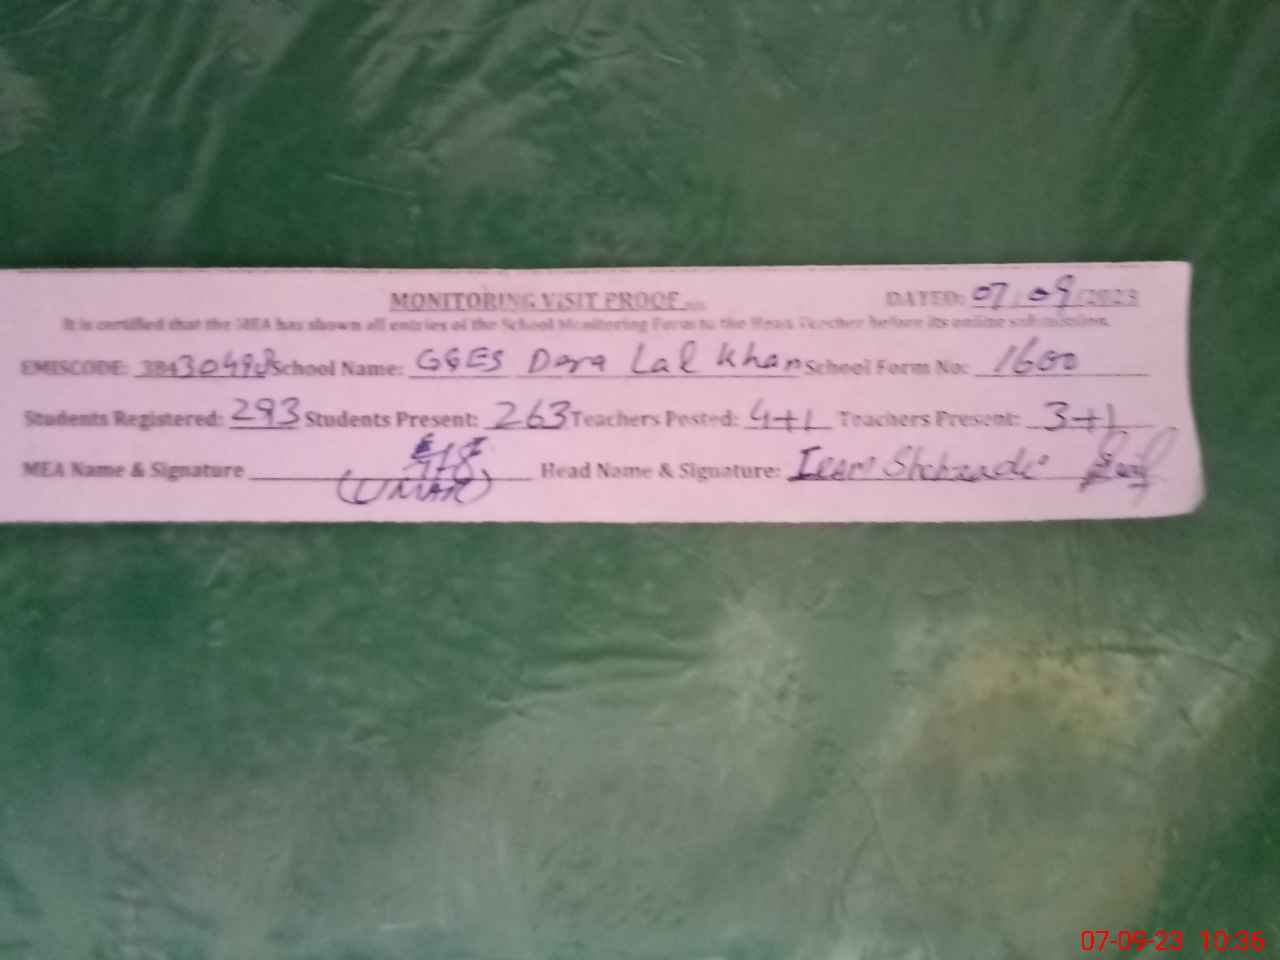 MONITORING VISIT PROOF DATED: 07/09/2023
It is certified that the MEA has shown all entries of the School Monitoring Form to the Head Teacher before its online submission.
EMISCODE: School Name: GGES Dera Lal Khan School Form No: 1600
Students Registered: 293 Students Present: 263 Teachers Posted: 4+1 Teachers Present: 3+1
MEA Name & Signature (UMAR) Head Name & Signature: Shehzadi
07-09-23 10:36